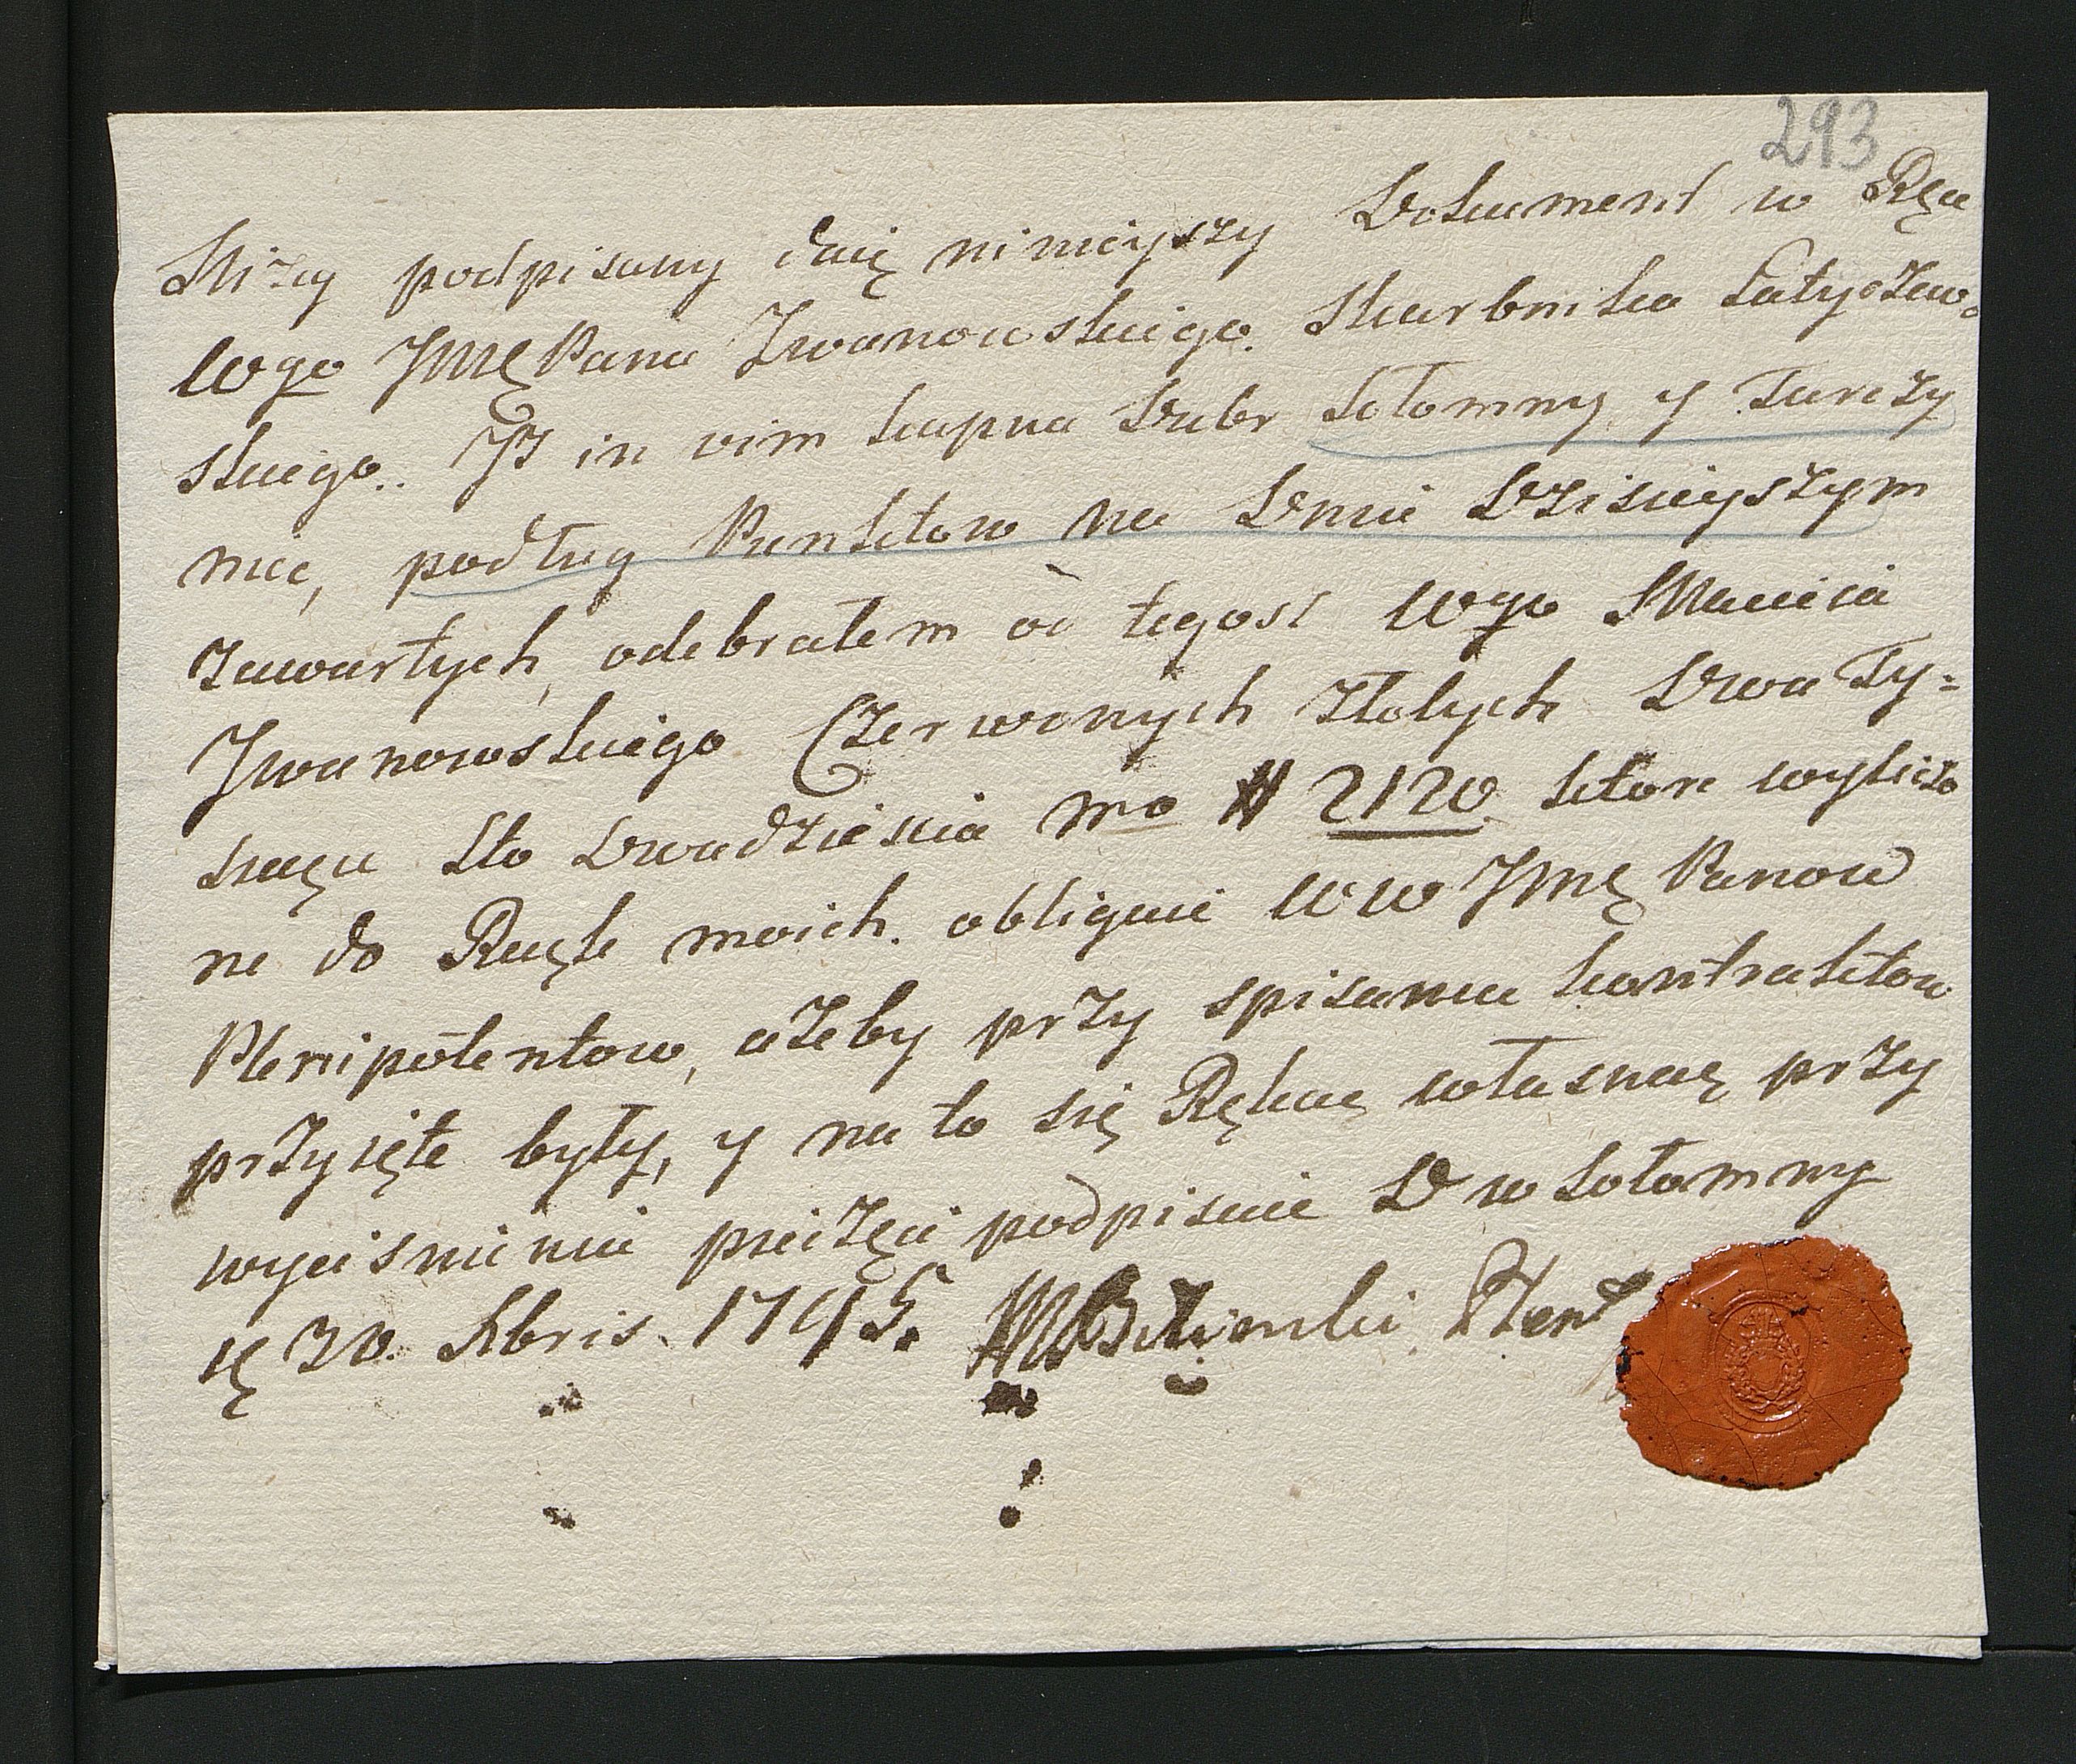 293
Niżey podpisany daię ninieyszy Dokument w Ręce
Wgo JMę Pana Iwanowskiego. Skarbnika Latyczew-
skiego.. Iż in vim kupna Dobr Sołomny y Tureczy
nic, podług Punktow na Dniu Dzisieyszym
zawartych, odebrałem od tegosz Wgo Macieia
Jwanowskiego Czerwonych Złotych Dwa Ty=
siącu Sto Dwadziescia mo # 2120. ktore wyliczo
ne do Rąk moich. obliguie WW JMę Panow
Plenipotentow, ażeby przy spisaniu kontraktow
przyięte były, y na to się Ręką własną przy
wycisnieniu pieczęci podpisuie D w Sołomny
ię 30. Xbris. 1795.